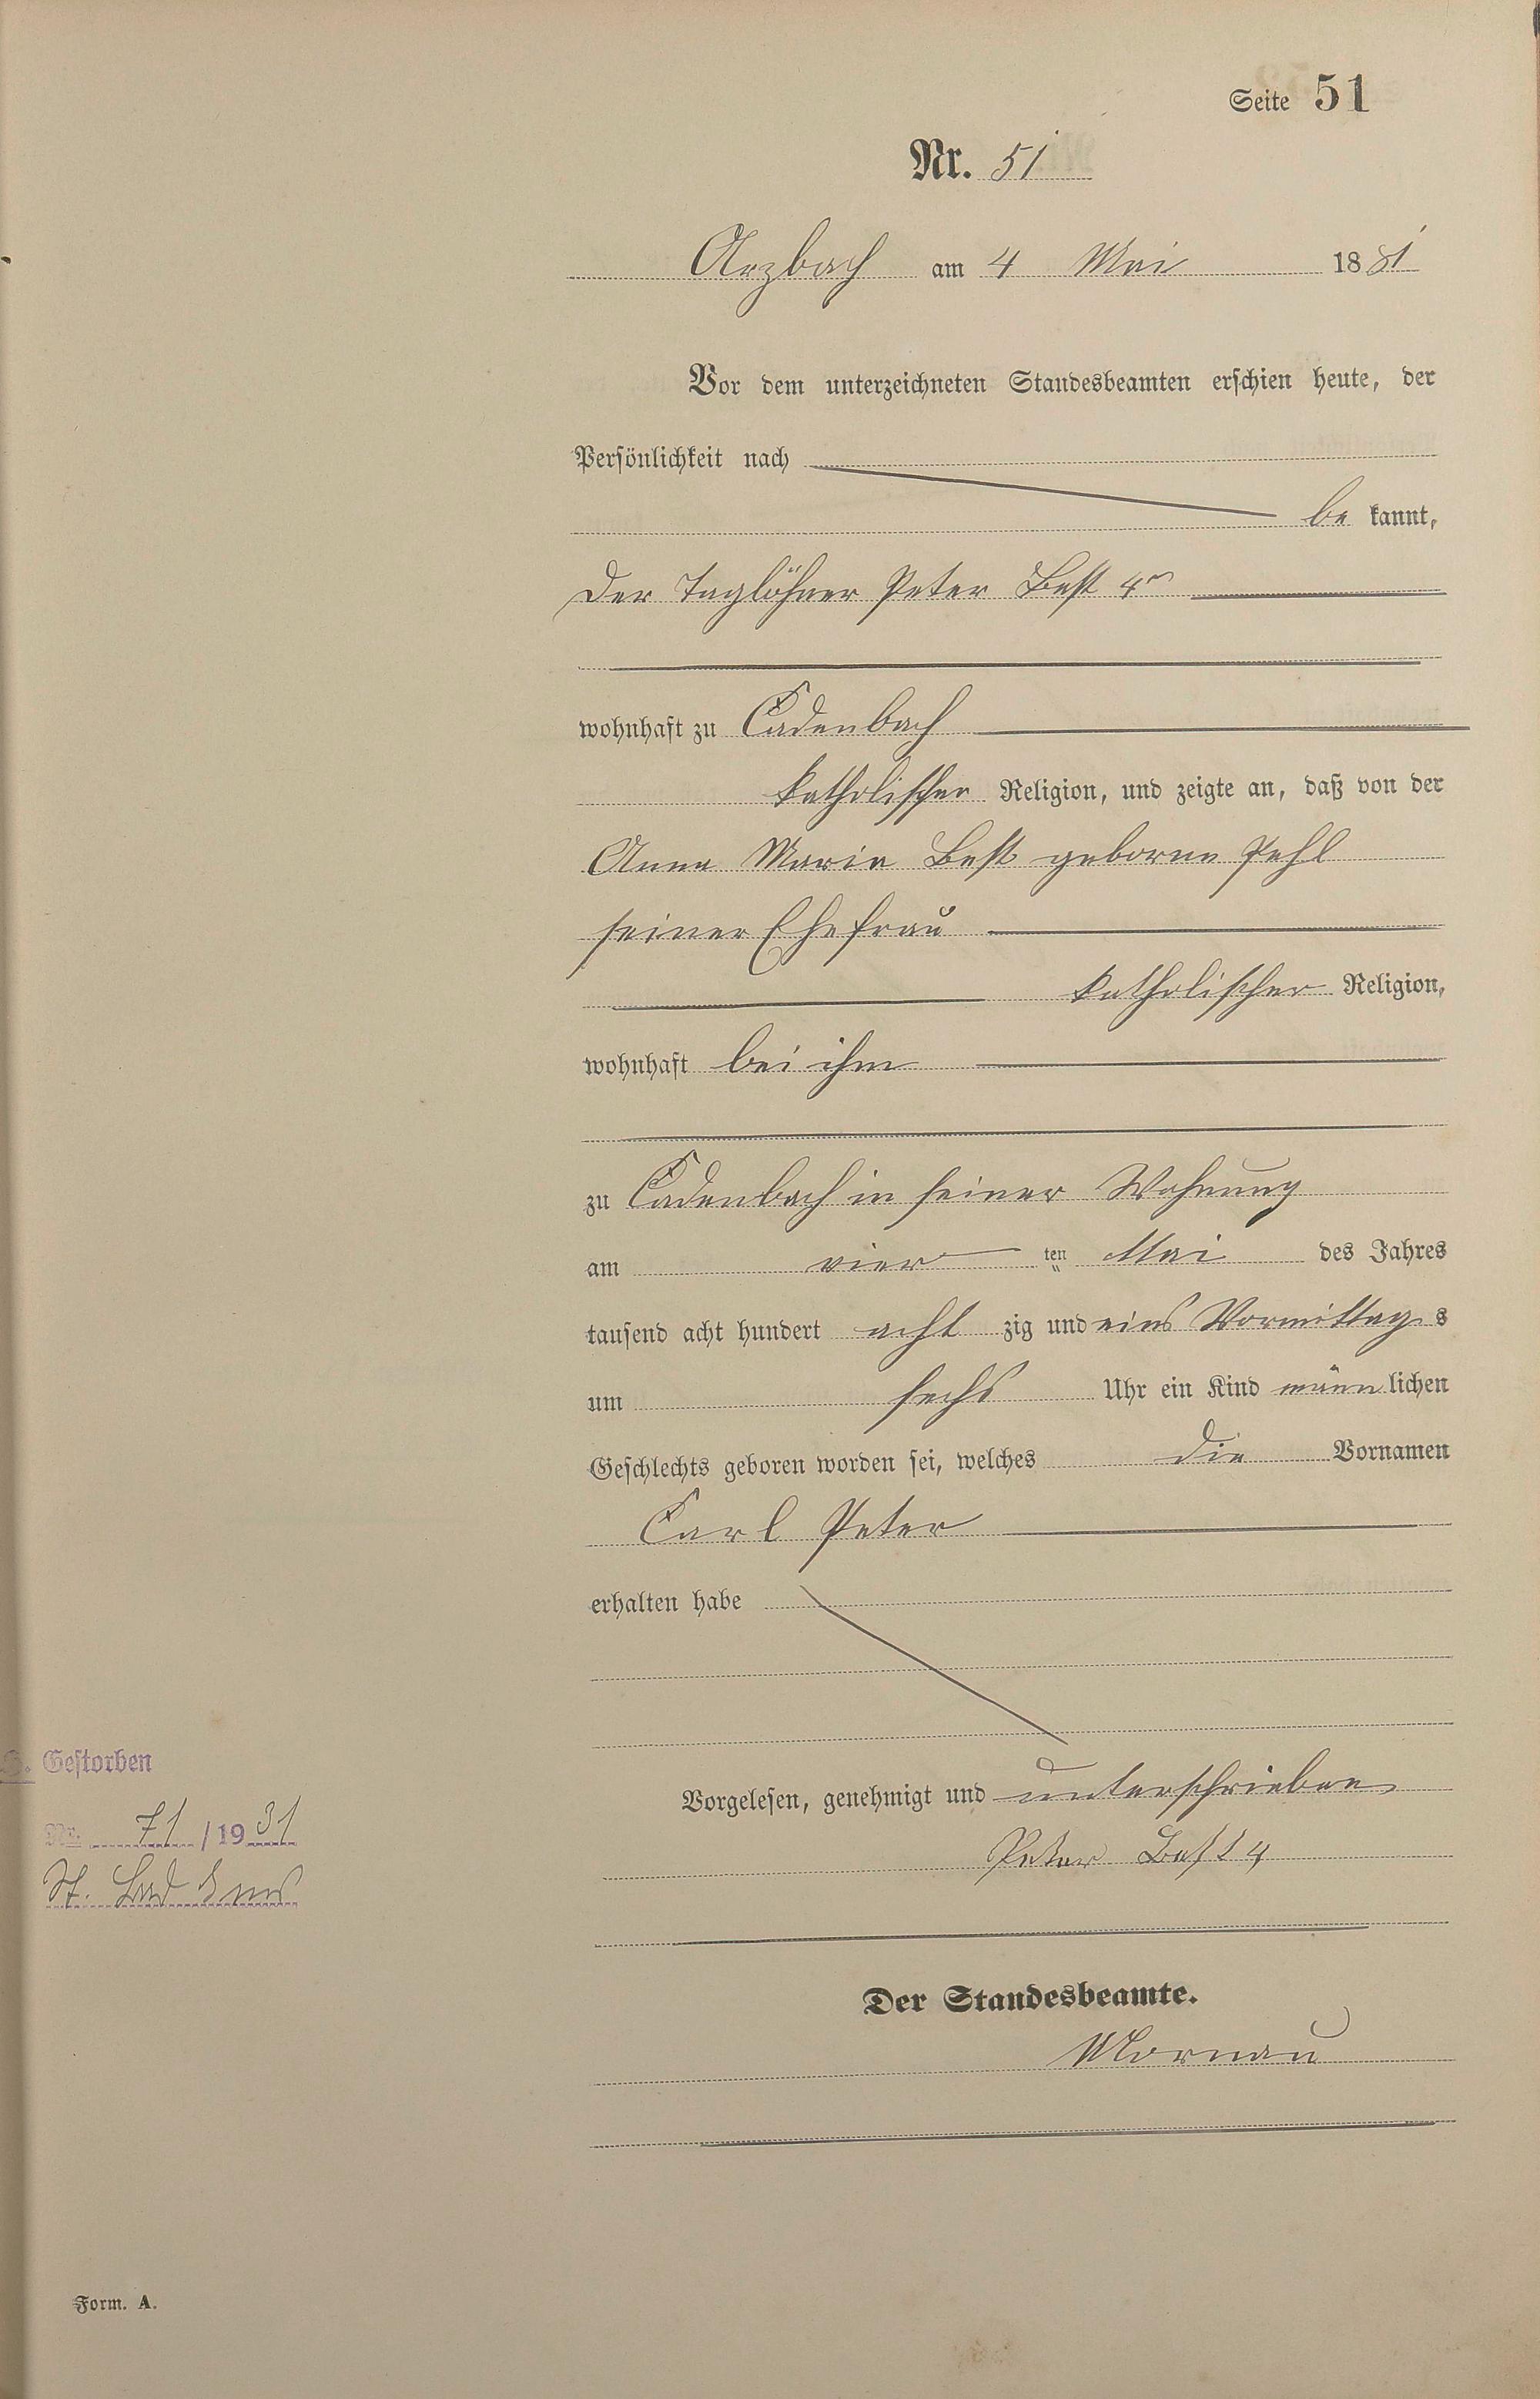 Seite 51
Nr. 51
Arzbach am 4 Mai 1881
Vor dem unterzeichneten Standesbeamten erschien heute, der
Persönlichkeit nach
be kannt,
der Taglöhner Peter Best 4r
wohnhaft zu Cadenbach
katholischer Religion, und zeigte an, daß von der
Anna Maria Best geborne Pehl
seiner Ehefrau
katholischer Religion,
wohnhaft bei ihm
zu Cadenbach in seiner Wohnung
am vier ten Mai des Jahres
tausend acht hundert acht zig und eins Vormittag s
um sechs Uhr ein Kind männ lichen
Geschlechts geboren worden sei, welches die Vornamen
Carl Peter
erhalten habe
Vorgelesen, genehmigt und unterschrieben
Peter Best 4
Der Standesbeamte.
Mornau
Gestorben
Nr. 71 / 1931
St. Bad Ems
Form. A.